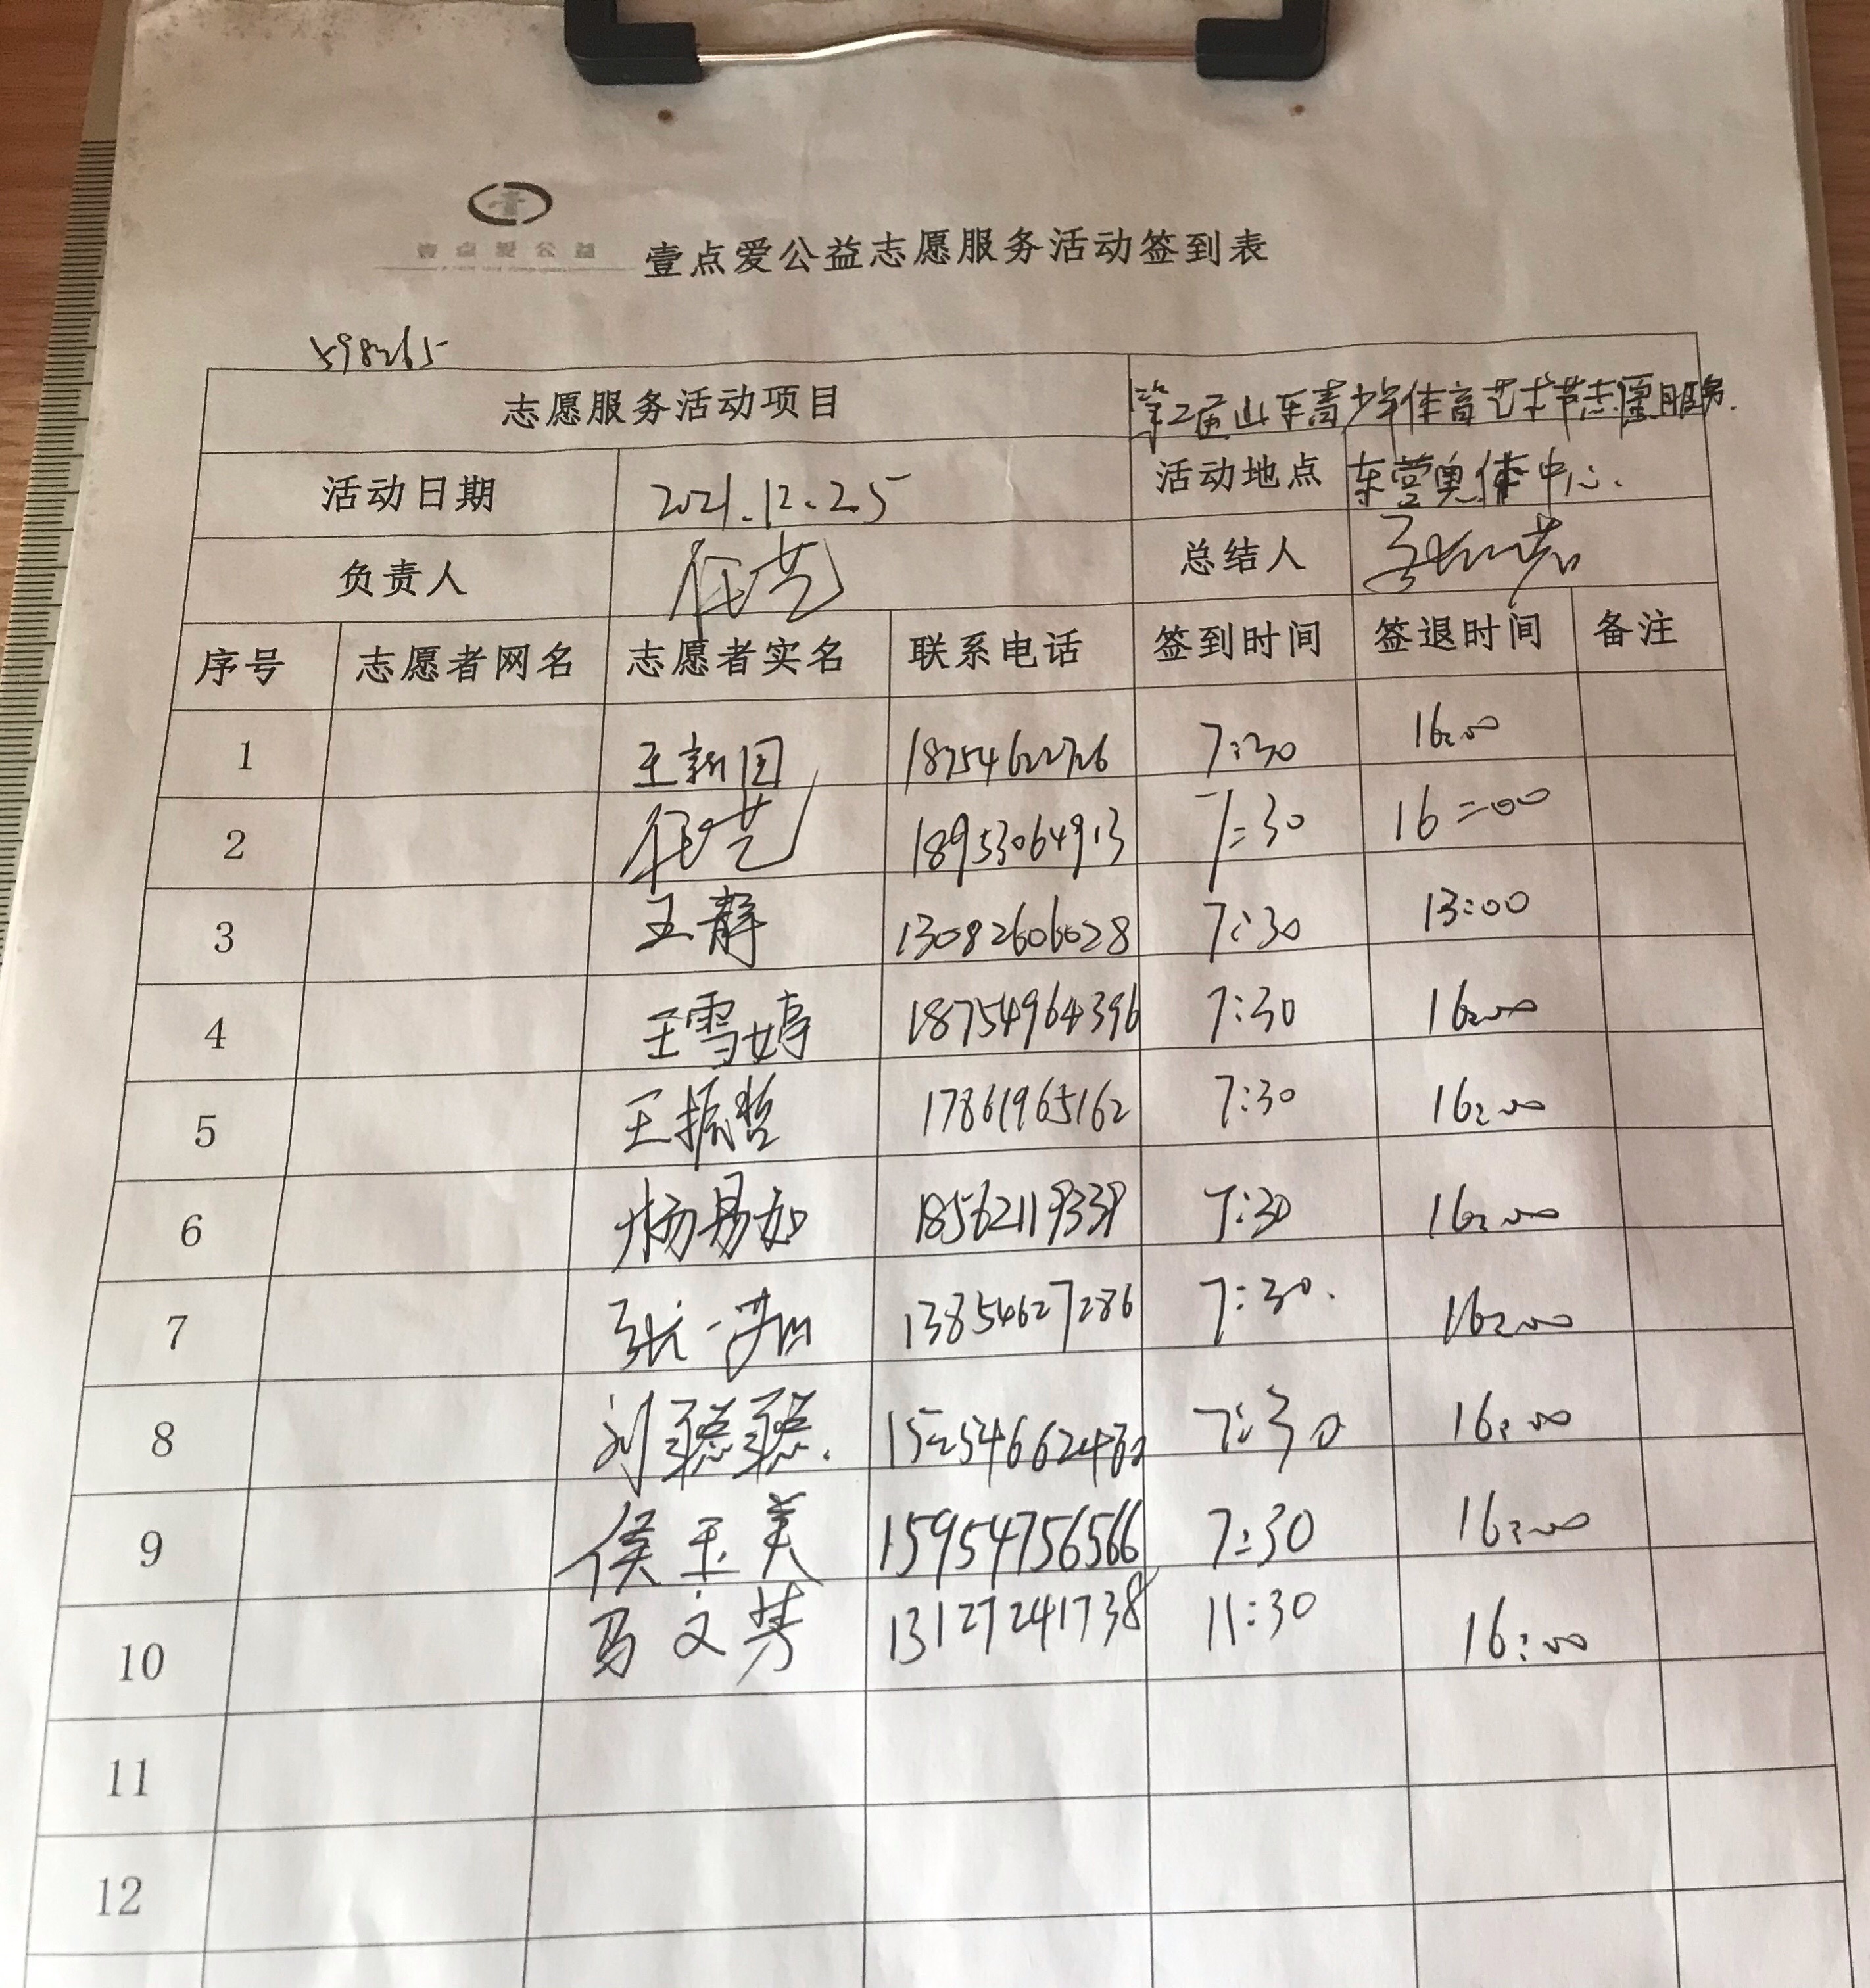 壹点爱公益
壹点爱公益志愿服务活动签到表
598265
志愿服务活动项目 第二届山东青少年体育艺术节志愿服务.
活动日期 2021.12.25 活动地点 东营奥体中心.
负责人 任艺 总结人
序号 志愿者网名 志愿者实名 联系电话 签到时间 签退时间 备注
1 王新因 18754622726 7:30 16:00
2 任艺 18953064913 7:30 16:00
3 王静 13082606028 7:30 13:00
4 王雪婷 18754964396 7:30 16:00
5 王振哲 17861965162 7:30 16:00
6 杨易如 18562119339 7:30 16:00
7 张一 13854627286 7:30. 16:00
8 刘聪聪. 7:30 16:00
9 侯玉美 15954756566 7:30 16:00
10 马文芳 13127241738 11:30 16:00
11
12